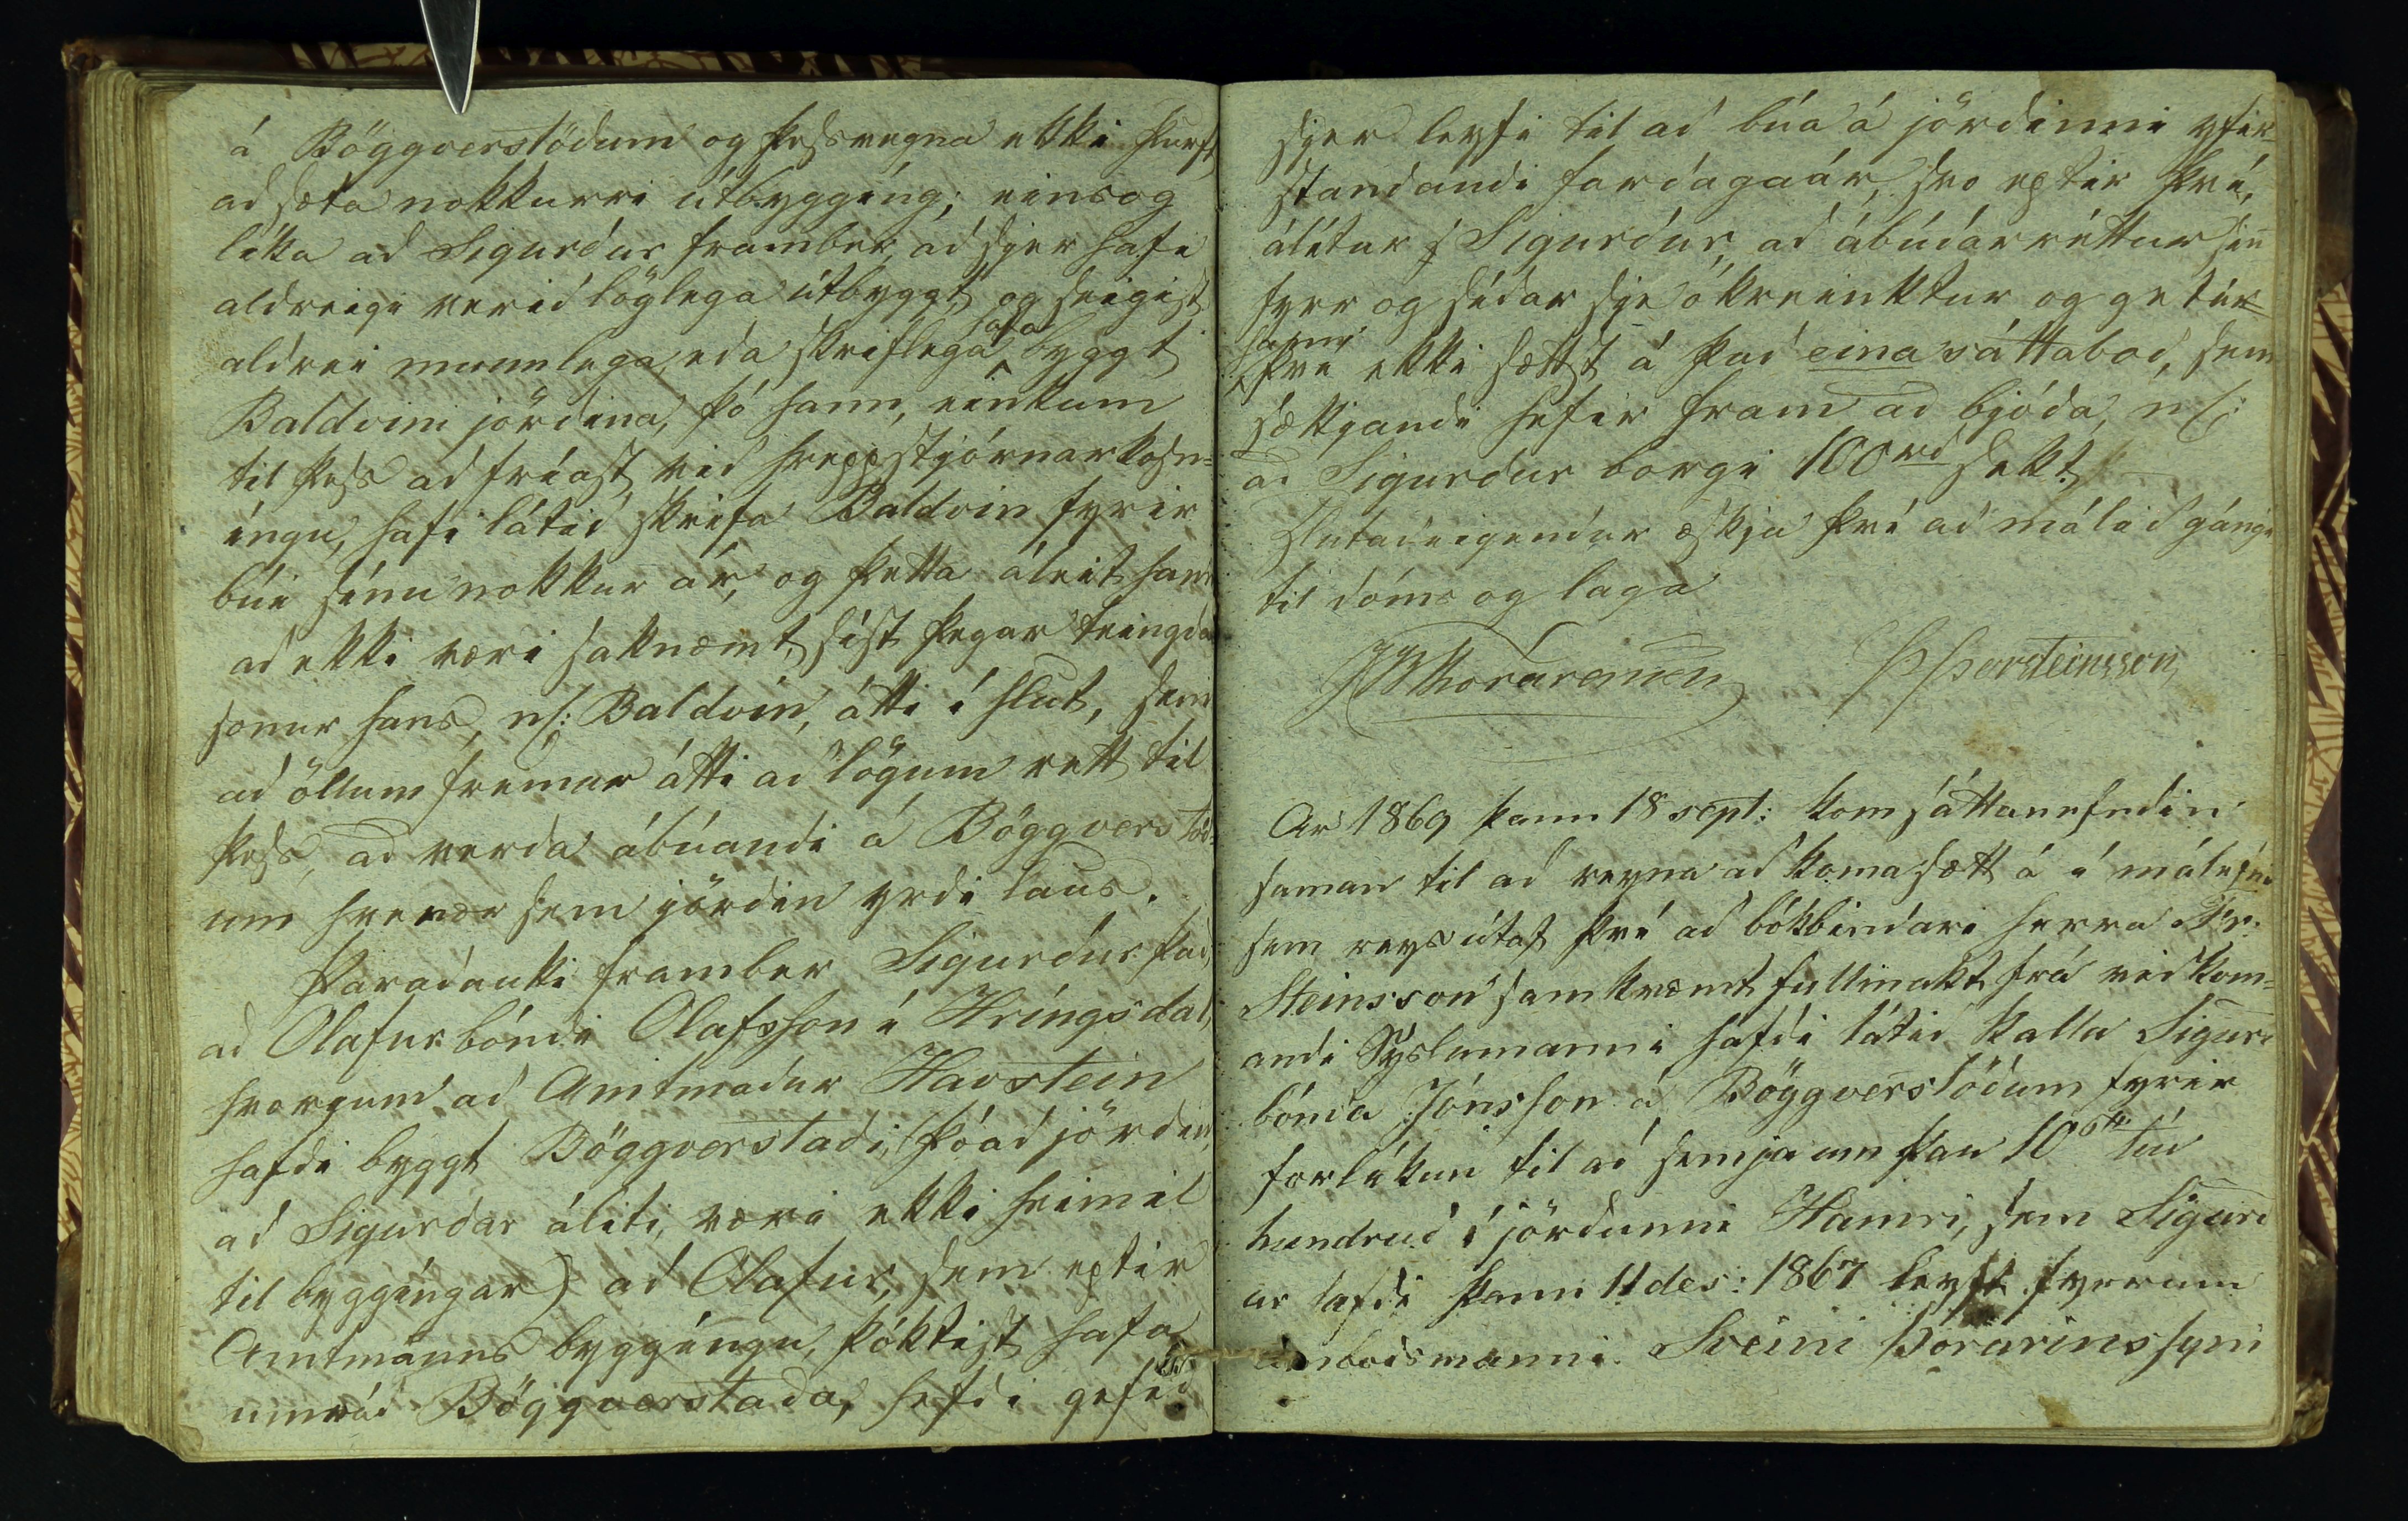 á Böggverstöðum og þessvegna ekki þurft
að sæta nokkurri útbyggíng; einsog
líka að Sigurður framber, að sjer hafi
aldreigi verið löglega útbyggt og seigist
aldrei munnlega, eða skriflega hafa byggt
Baldvini jörðina, þó hann, einkum
til þess að fríast við hreppstjórnarkosn=
íngu, hafi látið skrifa Baldvin fyrir
búi sínu nokkur ár, og þetta áleit hann
að ekki væri saknæmt, síst þegar teingda
sonur hans, nl: Baldvin, átti í hlut, sem
að öllum fremur átti að lögum rett til
þess, að verða ábúandi á Böggverstöð=
um hvenær sem jörðin yrði laus.
Þaraðauki framber Sigurður það,
að Olafur bóndi Olafsson í Hríngsdal,
hvörjum að Amtmaður Havstein
hafði byggt Böggverstaði, (þóað jörðin,
að Sigurðar áliti, væri ekki heimil
til byggíngar) að Olafur, sem eptir
Amtmanns byggíngu, þóktist hafa
umráð Böggverstaða, hefði gefið
sjer leyfi til að búa á jörðinni yfir=
standandi fardagaár, svo eptir því,
álítur Sigurður, að ábúðarréttur sinn
fyrr og síðar sje ókreinktur og getur
hann því ekki sættst á það eina sáttaboð, sem
sækjandi hefir fram að bjóða, nl:
að Sigurður borgi 100rd sekt.
Hlutaðeigendur æskja því að málið gángi
til dóms og laga
JGThorarensen ÞÞorsteinsson
Ar 1869 þann 18 sept: kom sáttanefndin
saman til að reyna að koma sætt á í málefni
sem reis útaf því að bókbindari herra Fr.
Steinsson samkvæmt fullmakt frá viðkom=
andi Sýslumanni hafði látið kalla Sigurð
bónda Jónsson á Böggverstöðum fyrir
forlíkun til að semja um þau 10 tíu
hundruð í jörðunni Hamri, sem Sigurð
ur hafði þann 11 des: 1867 leyft fyrrum
umboðsmanni Sveini Þórarinssyni